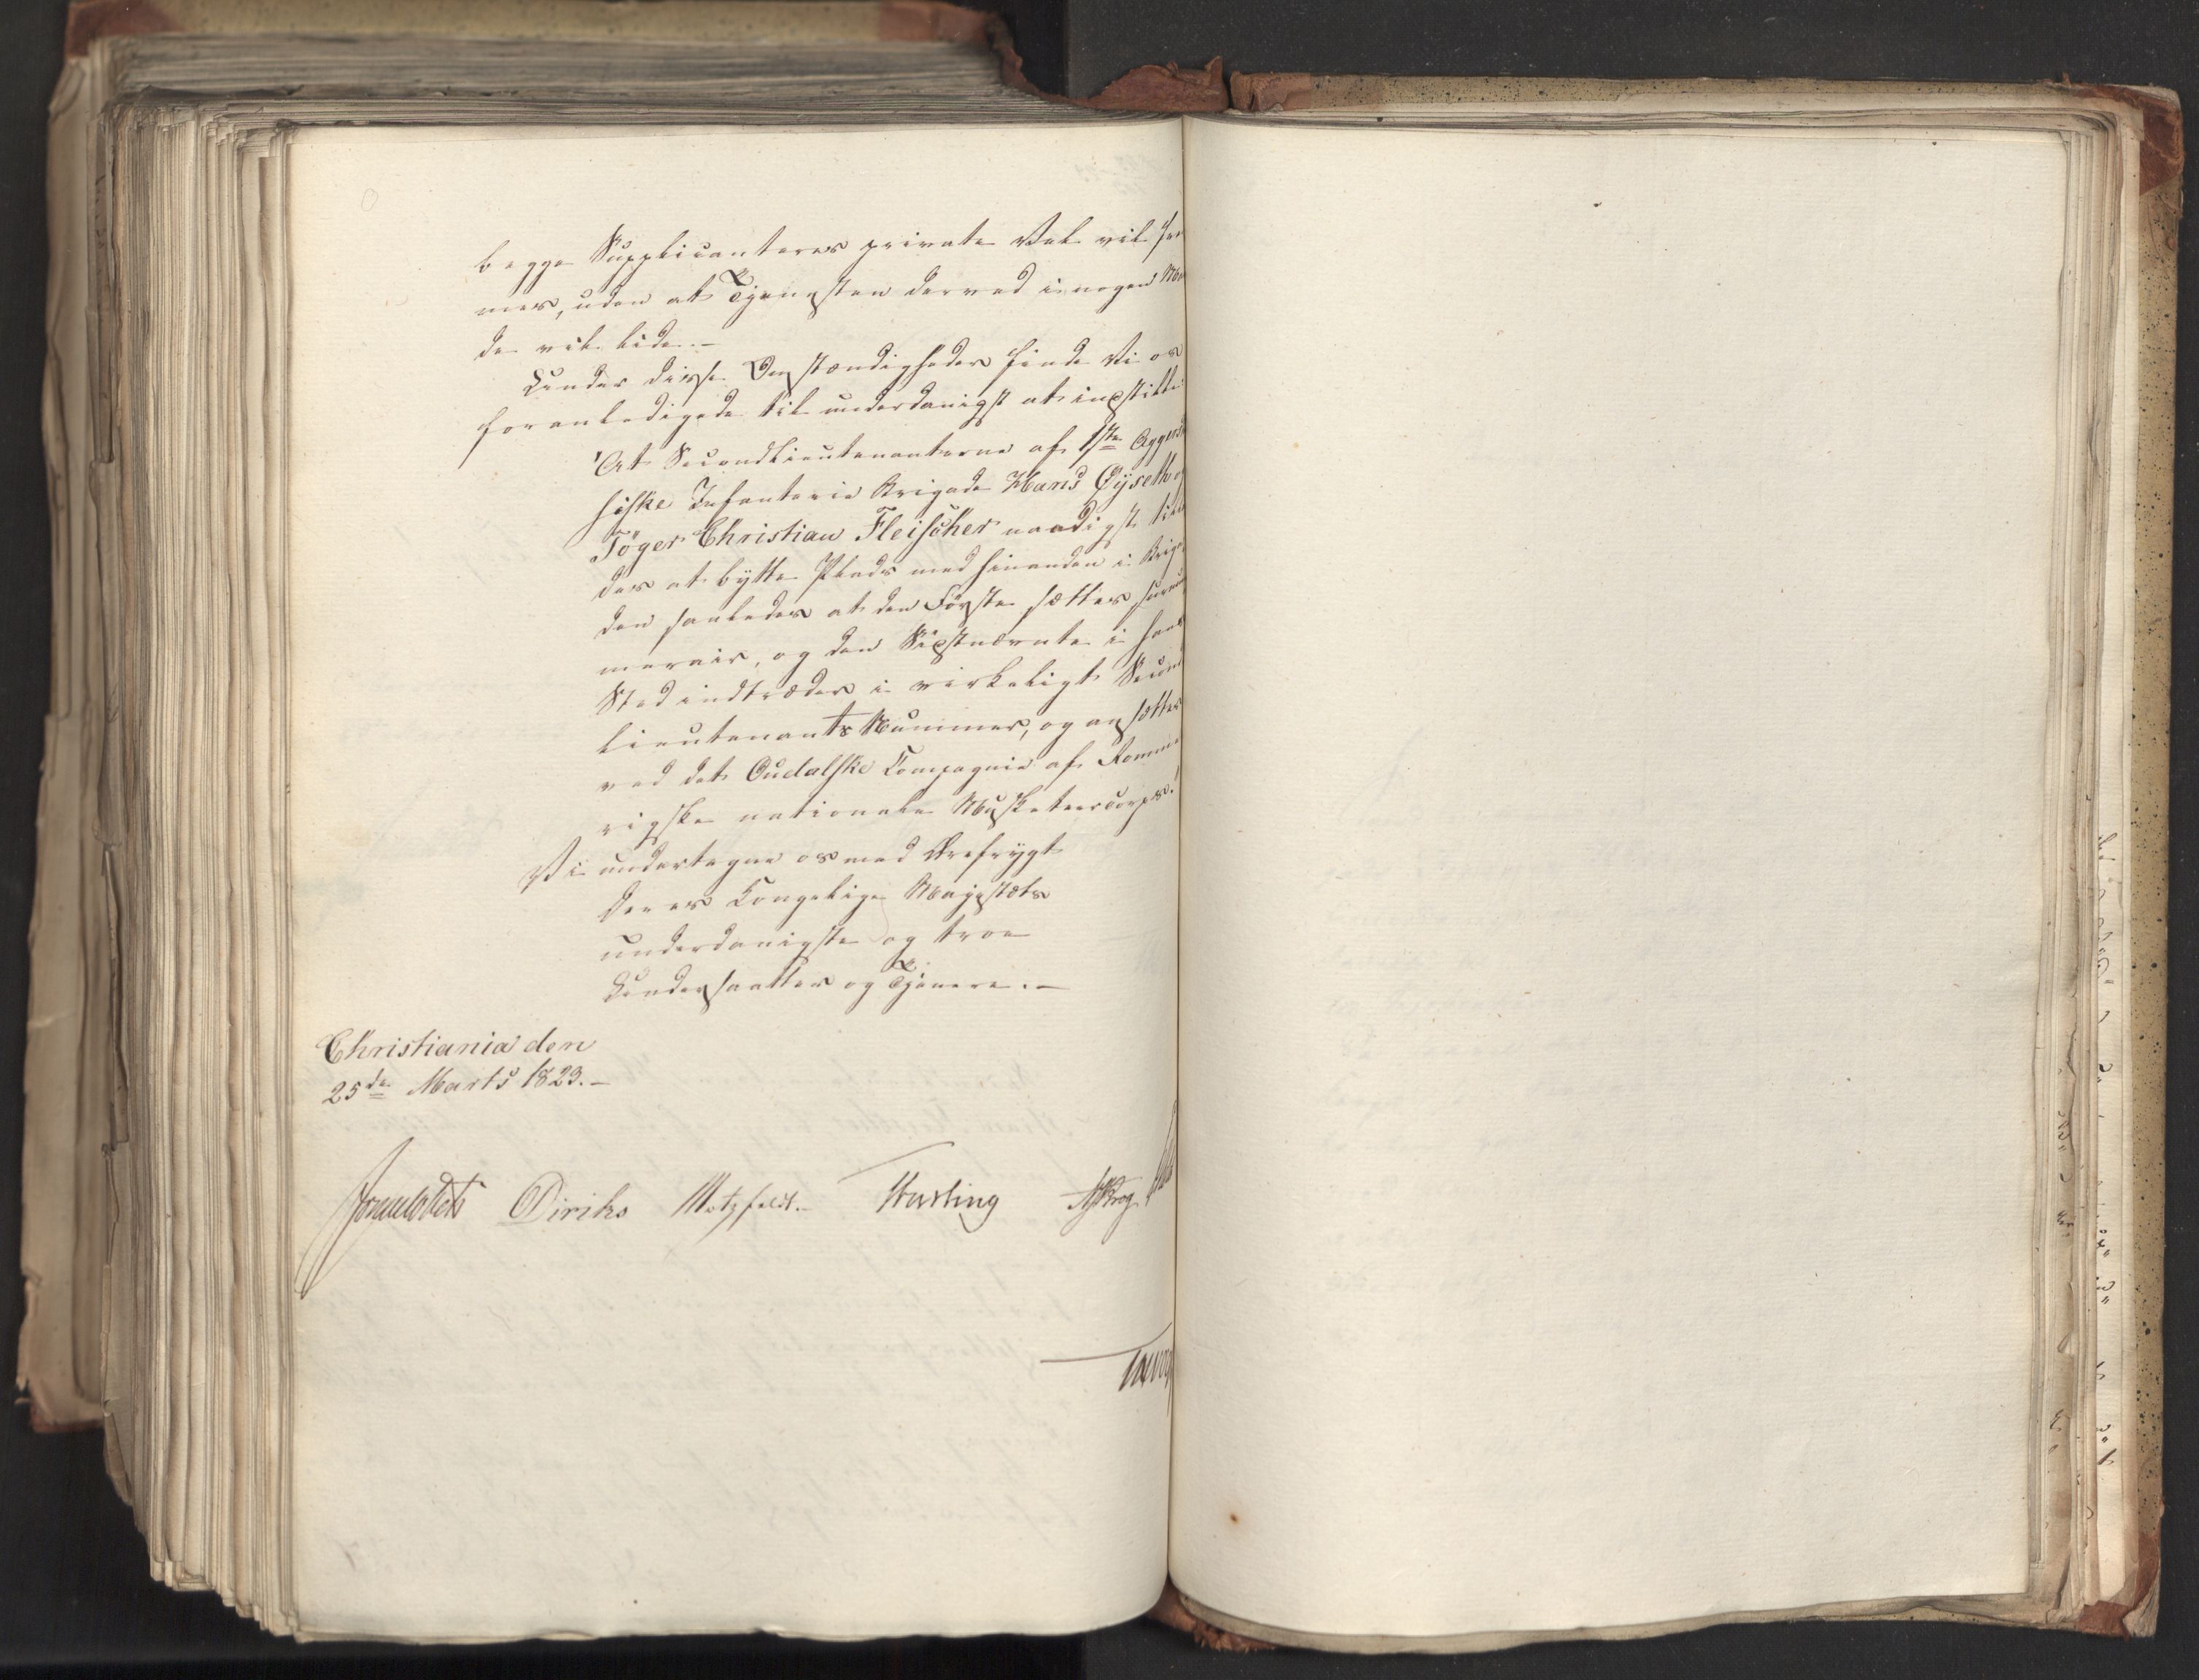 begge Supplicanteres private Vel vil frem
mes, uden at Tjenesten derved i nogen Maa
de vil lide.—
Under disse Omstændigheder finde Vi os
foranledigede til underdanigst at indstille
"At Secondlieutenanterne af 1ste Aggers
husiske Infanterie Brigade Hans Öijseth og
Töger Christian Fleischer naadigst tilla
des at bytte Plads med hinanden i Briga
den saaledes at den Første sættes surnu
merair, og den Sidstnævnte i hans
Sted indtræder i virkeligt Second
lieutenants Nummer, og ansættes
ved det Oudalske Compagnie af Romme
rigske nationale Musketeercorps."
Vi undertegne os med Ærefrygt
Deres Kongelige Majestæts
underdanigste og troe
Undersaatter og Tjenere.—
Christiania den
25de Marts 1823.—
Sommerhielm Diriks Motzfeldt. Hersling Krog